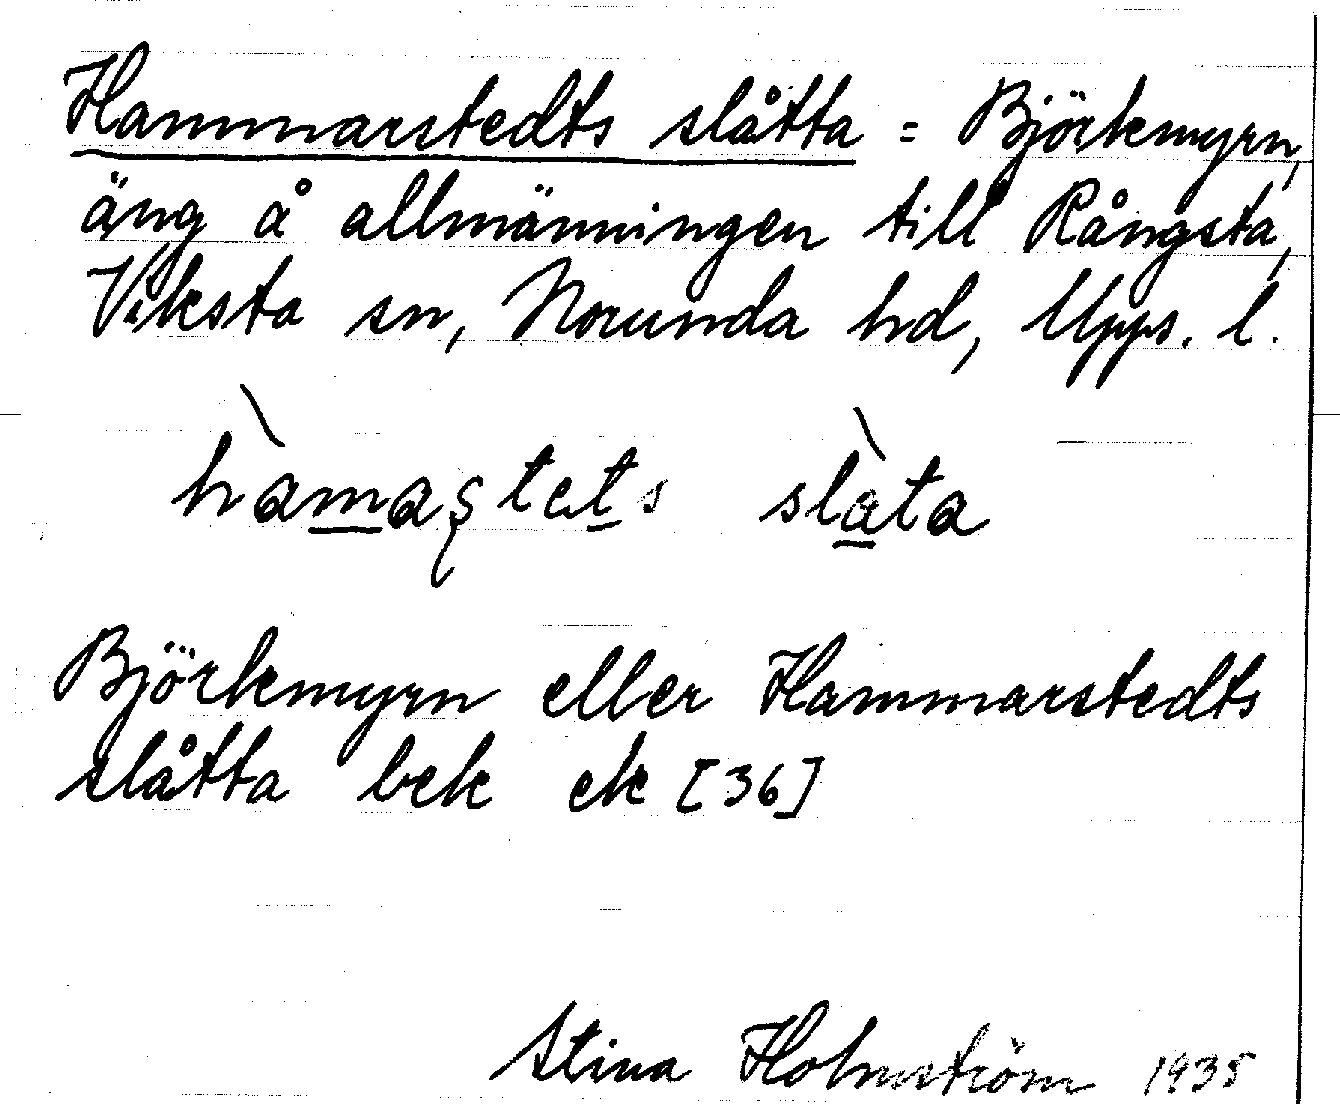 Hammarstedts slåtta = Björkmyrn,
äng å allmänningen till Rångsta,
Viksta sn, Norunda hd, Upps. l.
hàmaʂtets slàta
Björkmyrn eller Hammarstedts
slåtta bek ek [36]
Stina Holmström 1935